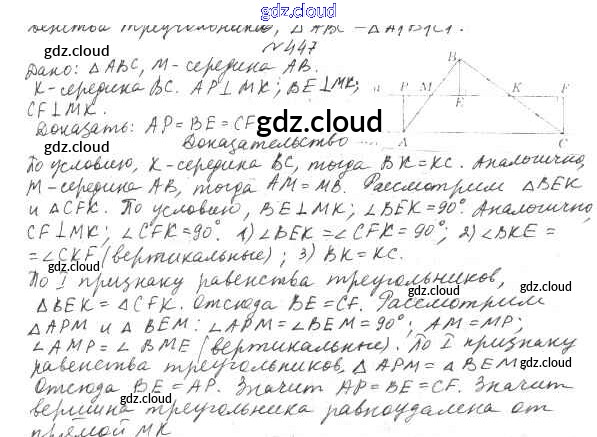 gdz.cloud
венства треугольников, △ABC = △A₁B₁C₁.
№447
Дано: △ABC, M - середина AB.
K - середина BC. AP⊥MK; BE⊥MK;
CF⊥MK.
Доказать: AP = BE = CF
B
P M K F
E
A C
gdz.cloud
gdz.cloud
gdz.cloud
gdz.cloud
Доказательство
По условию, K - середина BC, тогда BK = KC. Аналогично,
M - середина AB, тогда AM = MB. Рассмотрим △BEK
и △CFK. По условию, BE⊥MK; ∠BEK = 90°. Аналогично,
CF⊥MK; ∠CFK = 90°. 1) ∠BEK = ∠CFK = 90°; 2) ∠BKE =
= ∠CKF (вертикальные); 3) BK = KC.
gdz.cloud
gdz.cloud
По I признаку равенства треугольников,
△BEK = △CFK. Отсюда BE = CF. Рассмотрим
△APM и △BEM: ∠APM = ∠BEM = 90°; AM = MP;
∠AMP = ∠BME (вертикальные). По I признаку
равенства треугольников, △APM = △BEM
Отсюда BE = AP. Значит AP = BE = CF. Значит
вершина треугольника равноудалена от
прямой MK
gdz.cloud
gdz.cloud
gdz.cloud
gdz.cloud
gdz.cloud